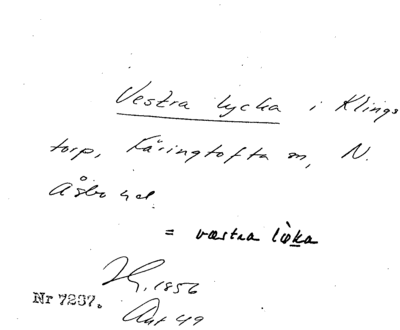 Vestra lycka i Klings
torp, Färingtofta sn, N.
Åsbo hd.
= væstra
1856
Nr 7237.
Ant 49